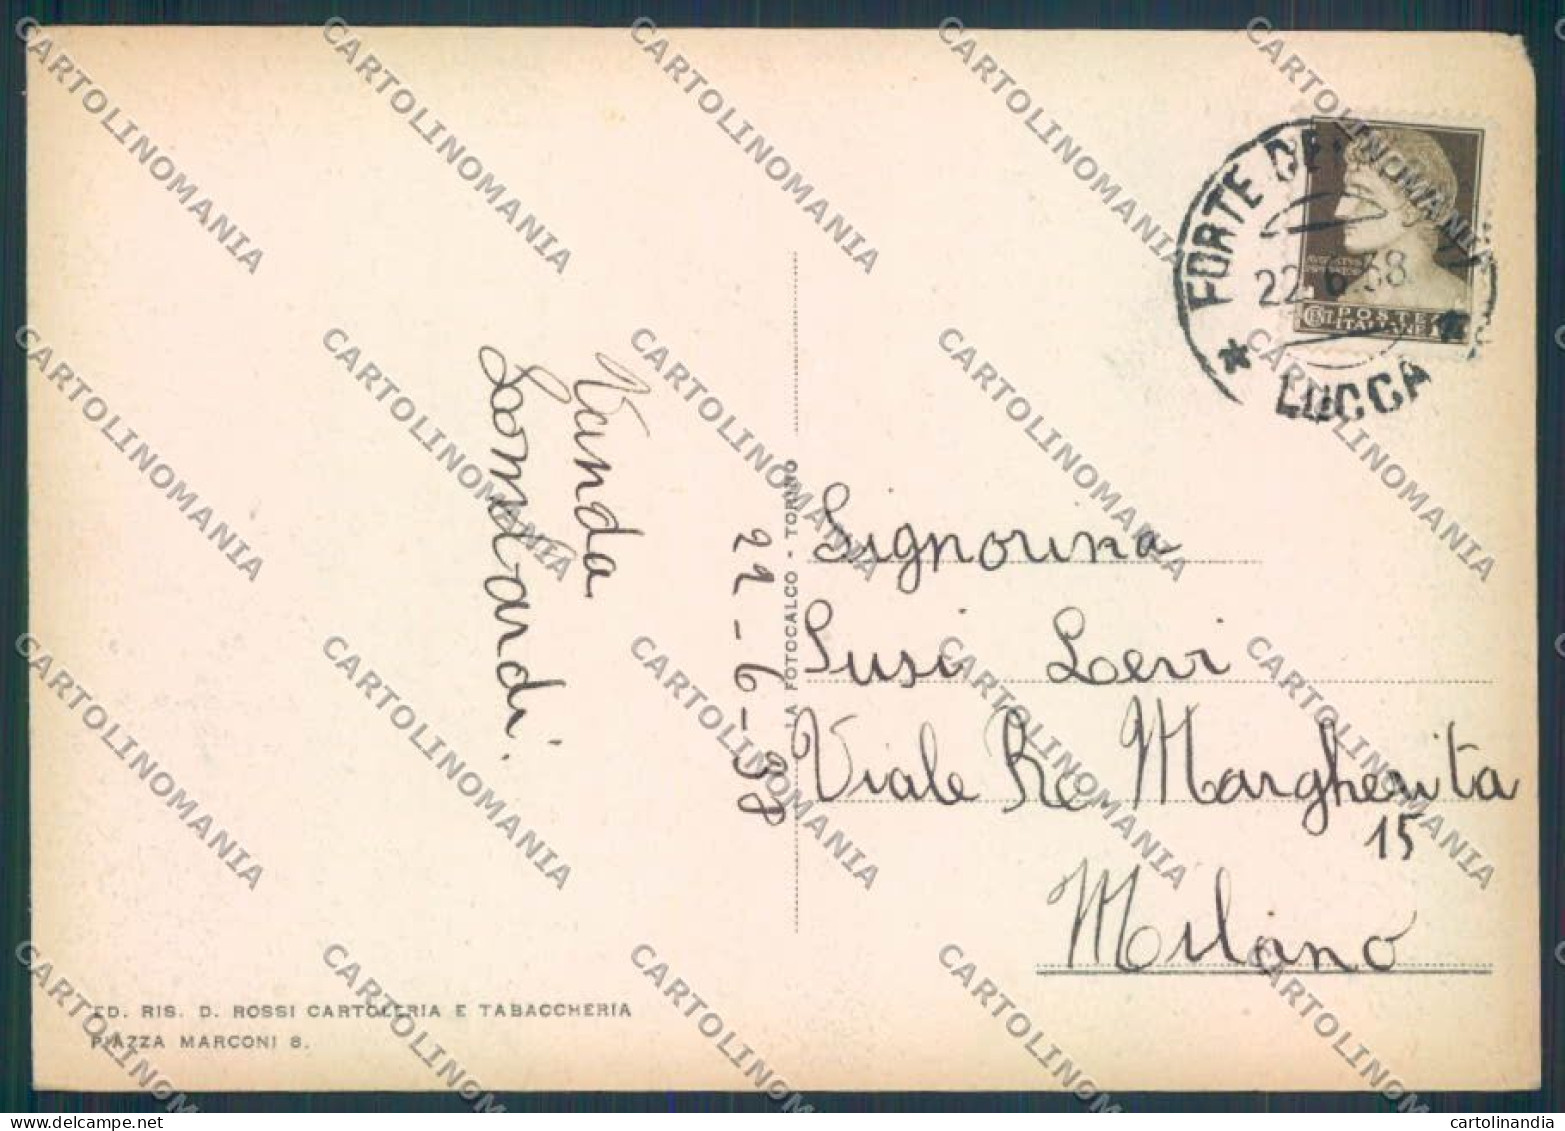 FORTE DEI
22.6.38
LUCCA
POSTE
ITALIANE
CENT.
Vanda
Lombardi.
22-6-38
LA FOTOCALCO - TORINO
Signorina
Susi Levi
Viale Re. Margherita
15
Milano
ED. RIS. D. ROSSI CARTOLERIA E TABACCHERIA
PIAZZA MARCONI 8.
CARTOLINOMANIA
cartolinandia